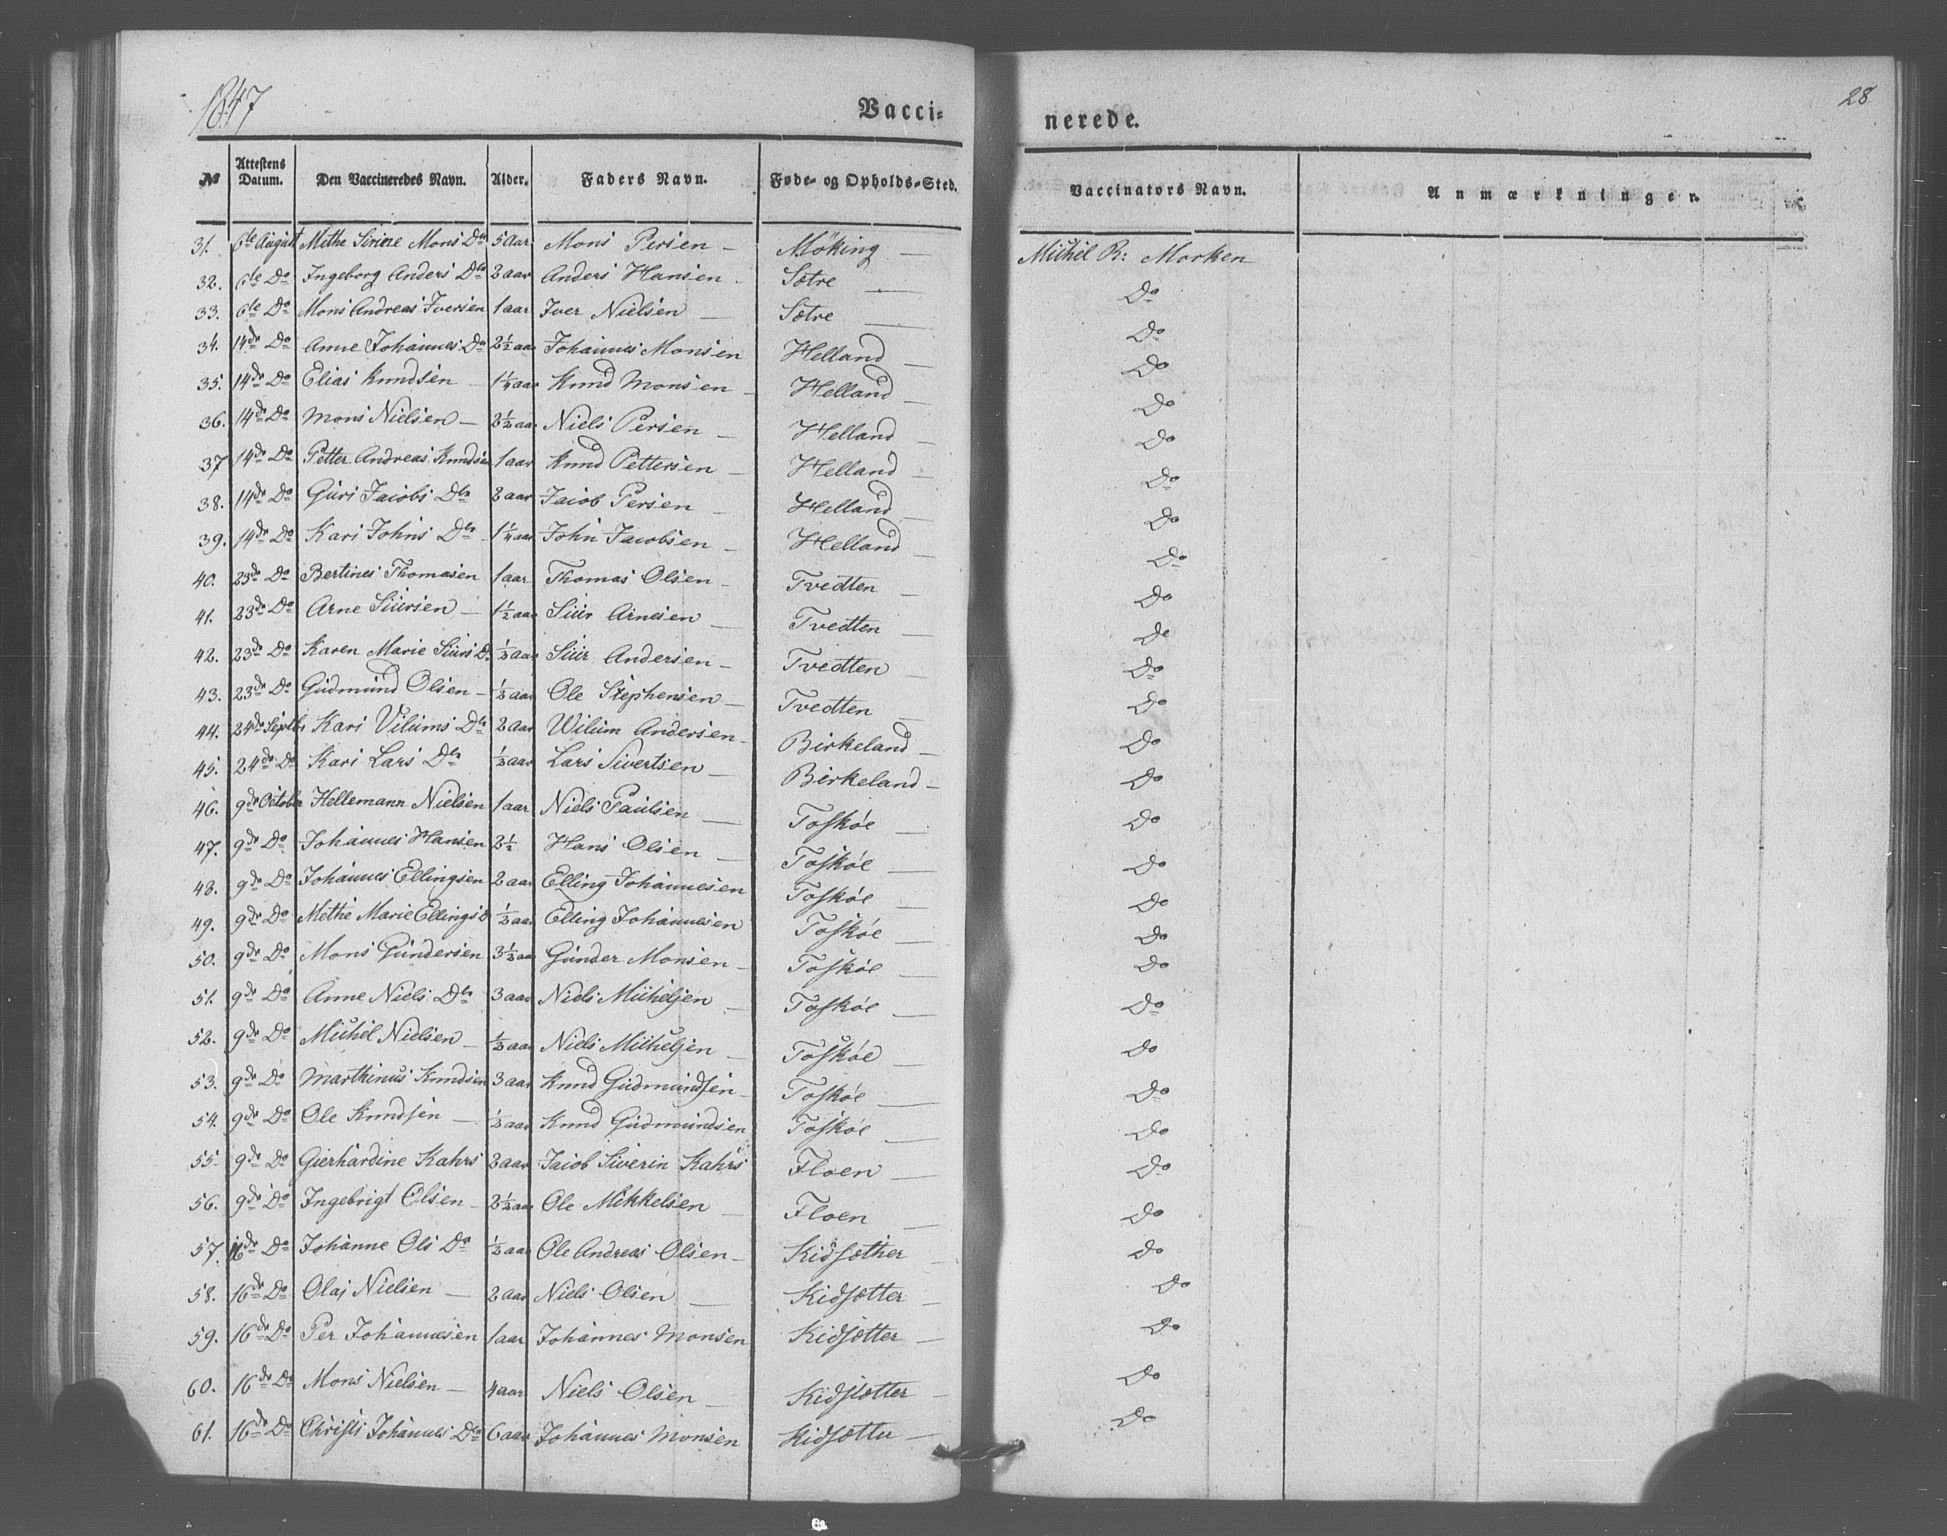 1847
Vacci-
nerede.
28
№ Attestens Datum. Den Vaccineredes Navn. Alder. Faders Navn. Føde- og Opholds-Sted. Vaccinators Navn. Anmærkninger.
31. 6te August Methe Sirine Mons Dtr 5 Aar Mons Persen — Möking — Michil R: Morken
32. 6te Do Ingeborg Anders Dtr 2 aar Anders Hansen — Sætre — Do
33. 6te Do Mons Andreas Iversen 1 aar Iver Nielsen — Sætre — Do
34. 14de Do Anne Johannes Dtr 2½ aar Johannes Monsen Helland — Do
35. 14de Do Elias Knudsen — 1¼ aar Knud Monsen — Helland — Do
36. 14de Do Mons Nielsen — 2½ aar Niels Persen — Helland — Do
37 14de Do Petter Andreas Knudsen 1 aar Knud Pettersen — Helland — Do
38. 14de Do Guri Jacobs Dtr 2 aar Jacob Persen — Helland — Do
39. 14de Do Kari Johns Dtr 1¼ aar John Jacobsen — Helland — Do
40. 23de Do Bertines Thomasen 1 aar Thomas Olsen — Tvedten — Do
41. 23de Do Arne Siursen — 1½ aar Siur Arnesen — Tvedten — Do
42. 23de Do Karen Marie Siurs D ½ aar Siur Andersen — Tvedten — Do
43. 23de Do Gudmund Olsen — ½ aar Ole Stephensen — Tvedten — Do
44. 24de Septbr Kari Vilums Dtr 2 aar Wilum Andersen — Birkeland — Do
45. 24de Do Kari Lars Dtr ½ aar Lars Sivertsen — Birkeland — Do
46. 9de October Hellemann Nielsen 1 aar Niels Paulsen — Toskøe — Do
47. 9de Do Johannes Hansen 2½ Hans Olsen — Toskøe — Do
48. 9de Do Johannes Ellingsen 2 aar Elling Johannesen Toskøe — Do
49. 9de Do Methe Marie Ellings D ½ aar Elling Johannesen Toskøe — Do
50. 9de Do Mons Gundersen 3½ aar Gunder Monsen — Toskøe — Do
51. 9de Do Anne Niels Dtr 3 aar Niels Michelsen — Toskøe — Do
52. 9de Do Michel Nielsen — ½ aar Niels Michelsen — Toskøe — Do
53. 9de Do Marthinus Knudsen 3 aar Knud Gudmundsen — Toskøe — Do
54. 9de Do Ole Knudsen — ½ aar Knud Gudmundsen Toskøe — Do
55. 9de Do Gierhardine Kahrs 2 aar Jacob Siverin Kahrs Floen — Do
56. 9de Do Ingebrigt Olsen — 2½ aar Ole Mikkelsen — Floen — Do
57. 16de Do Johanne Ols Dr ½ aar Ole Andreas Olsen — Kidsæther Do
58. 16de Do Olai Nielsen — 2 aar Niels Olsen — Kidsætter — Do
59. 16de Do Per Johannesen 1 aar Johannes Monsen Kidsætter — Do
60. 16de Do Mons Nielsen — 4 aar Niels Olsen — Kidsætter — Do
61. 16de Do Christi Johannes Dtr 6 aar Johannes Monsen Kidsætter — Do